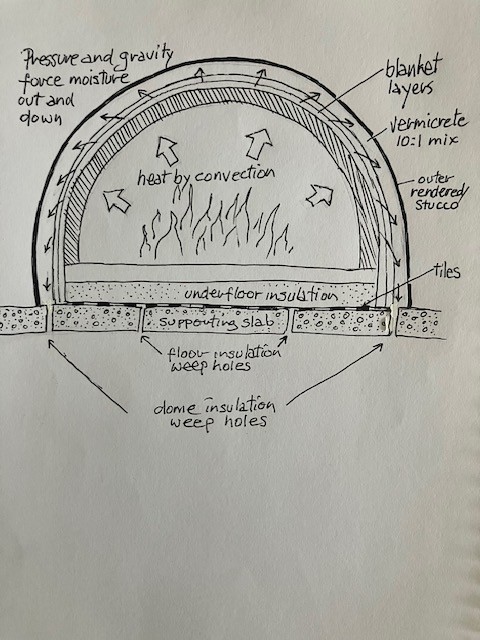 Pressure and gravity
force moisture
out and
down
blanket
layers
vermicrete
10:1 mix
outer
rendered/
stucco
heat by convection
tiles
underfloor insulation
supporting slab
floor insulation
weep holes
dome insulation
weep holes